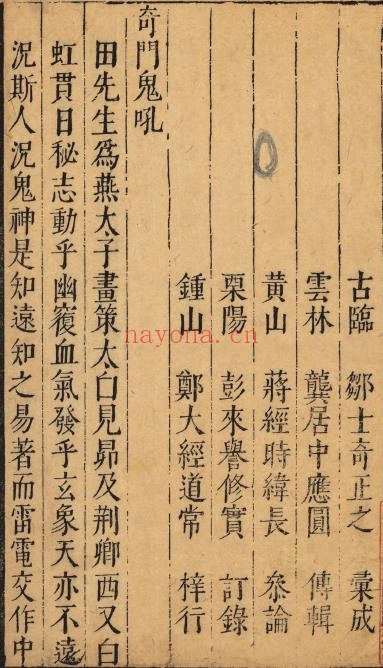 古臨 鄒士奇正之 彙成
雲林 龔居中應圓 傳輯
黃山 蔣經時緯長 叅論
栗陽 彭來譽修實 訂錄
鍾山 鄭大經道常 梓行
奇門鬼吼
田先生爲燕太子畫策太白見昴及荆卿西又白
虹貫日秘志動乎幽竅血氣發乎玄象天亦不遠
況斯人況鬼神是知遠知之易著而雷電交作中
nayona.cn